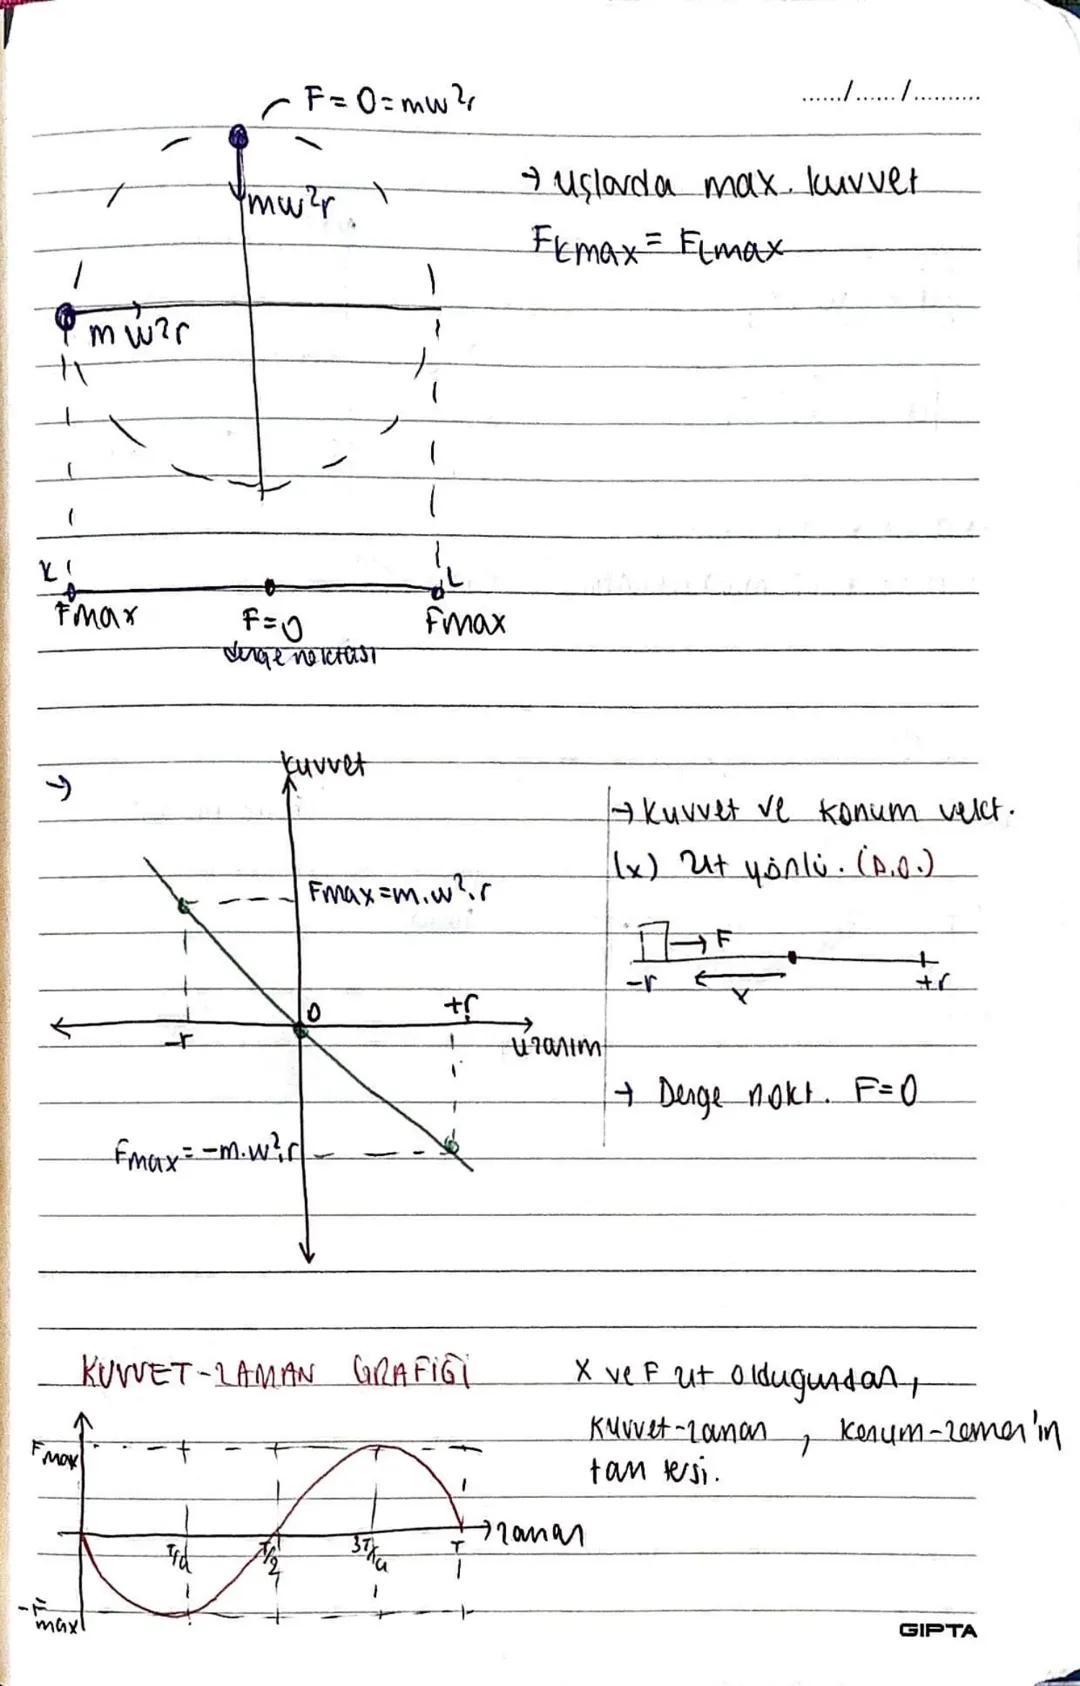 F=0=mw²r
....../....../..........
mw²r
→ uçlarda max. kuvvet
FKmax = FLmax
mw²r
K
L
Fmax
F=0
Fmax
denge noktası
→
kuvvet
→ Kuvvet ve konum vekt.
(x) zıt yönlü. (D.O.)
Fmax=m.w².r
F
-r
x
+r
0
+r
-r
uzanım
→ Denge nokt. F=0
Fmax=-m.w².r
KUVVET-ZAMAN GRAFİĞİ
x ve F zıt olduğundan,
Kuvvet-zaman, konum-zaman'ın
tam tersi.
Fmax
T/4
T/2
3T/4
T
zaman
-Fmax
GIPTA